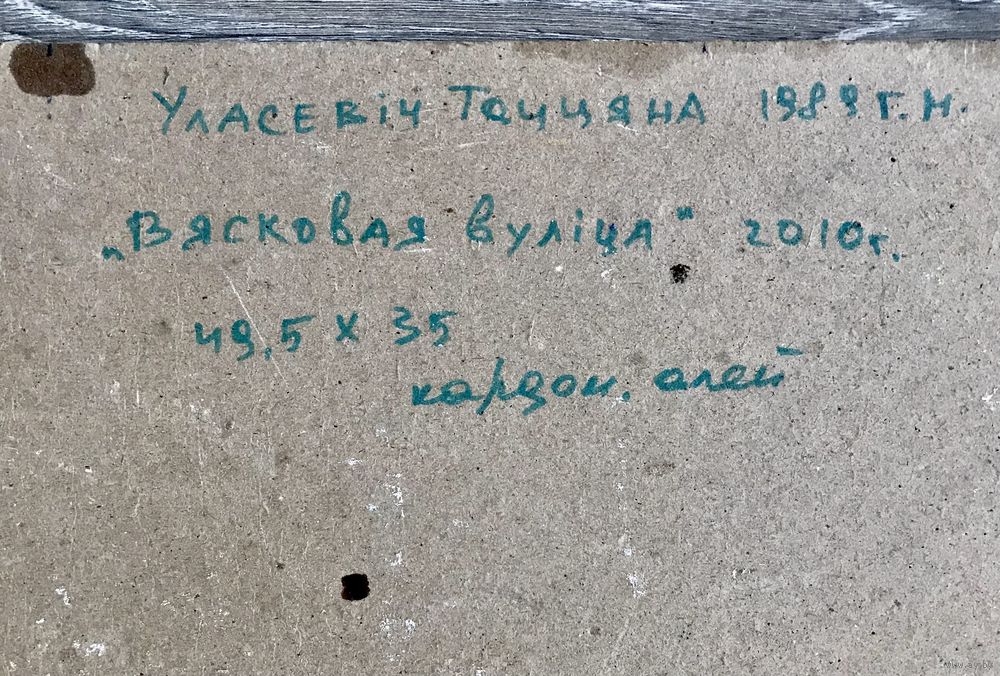 Уласевіч Таццяна 1989 г.н.
„Вясковая вуліца" 2010г.
49,5 х 35
кардон. алей